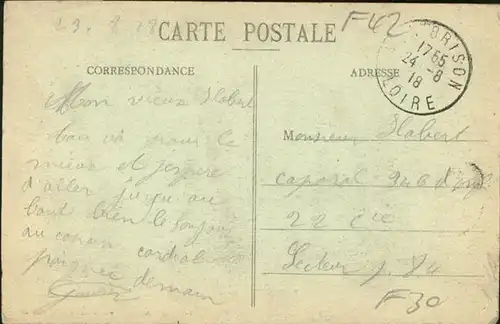 23.8.18
F42
CARTE POSTALE
BRISON
17 55
24 - 8
18
LOIRE
CORRESPONDANCE
ADRESSE
Mon vieux Habert
tout va pour le
mieux et j'espère
d'aller jusqu'au
bout bien le bonjour
au copain cordiale
poignée de main
Monsieur Habert
caporal
22 Cie
Secteur p. 84
F30